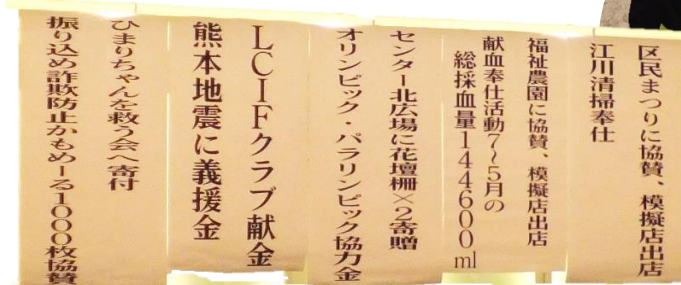 区民まつりに協賛、模擬店出店
江川清掃奉仕
福祉農園に協賛、模擬店出店
献血奉仕活動7〜5月の
総採血量144600ml
センター北広場に花壇柵×2寄贈
オリンピック・パラリンピック協力金
LCIFクラブ献金
熊本地震に義援金
ひまりちゃんを救う会へ寄付
振り込め詐欺防止かもめーる1000枚協賛